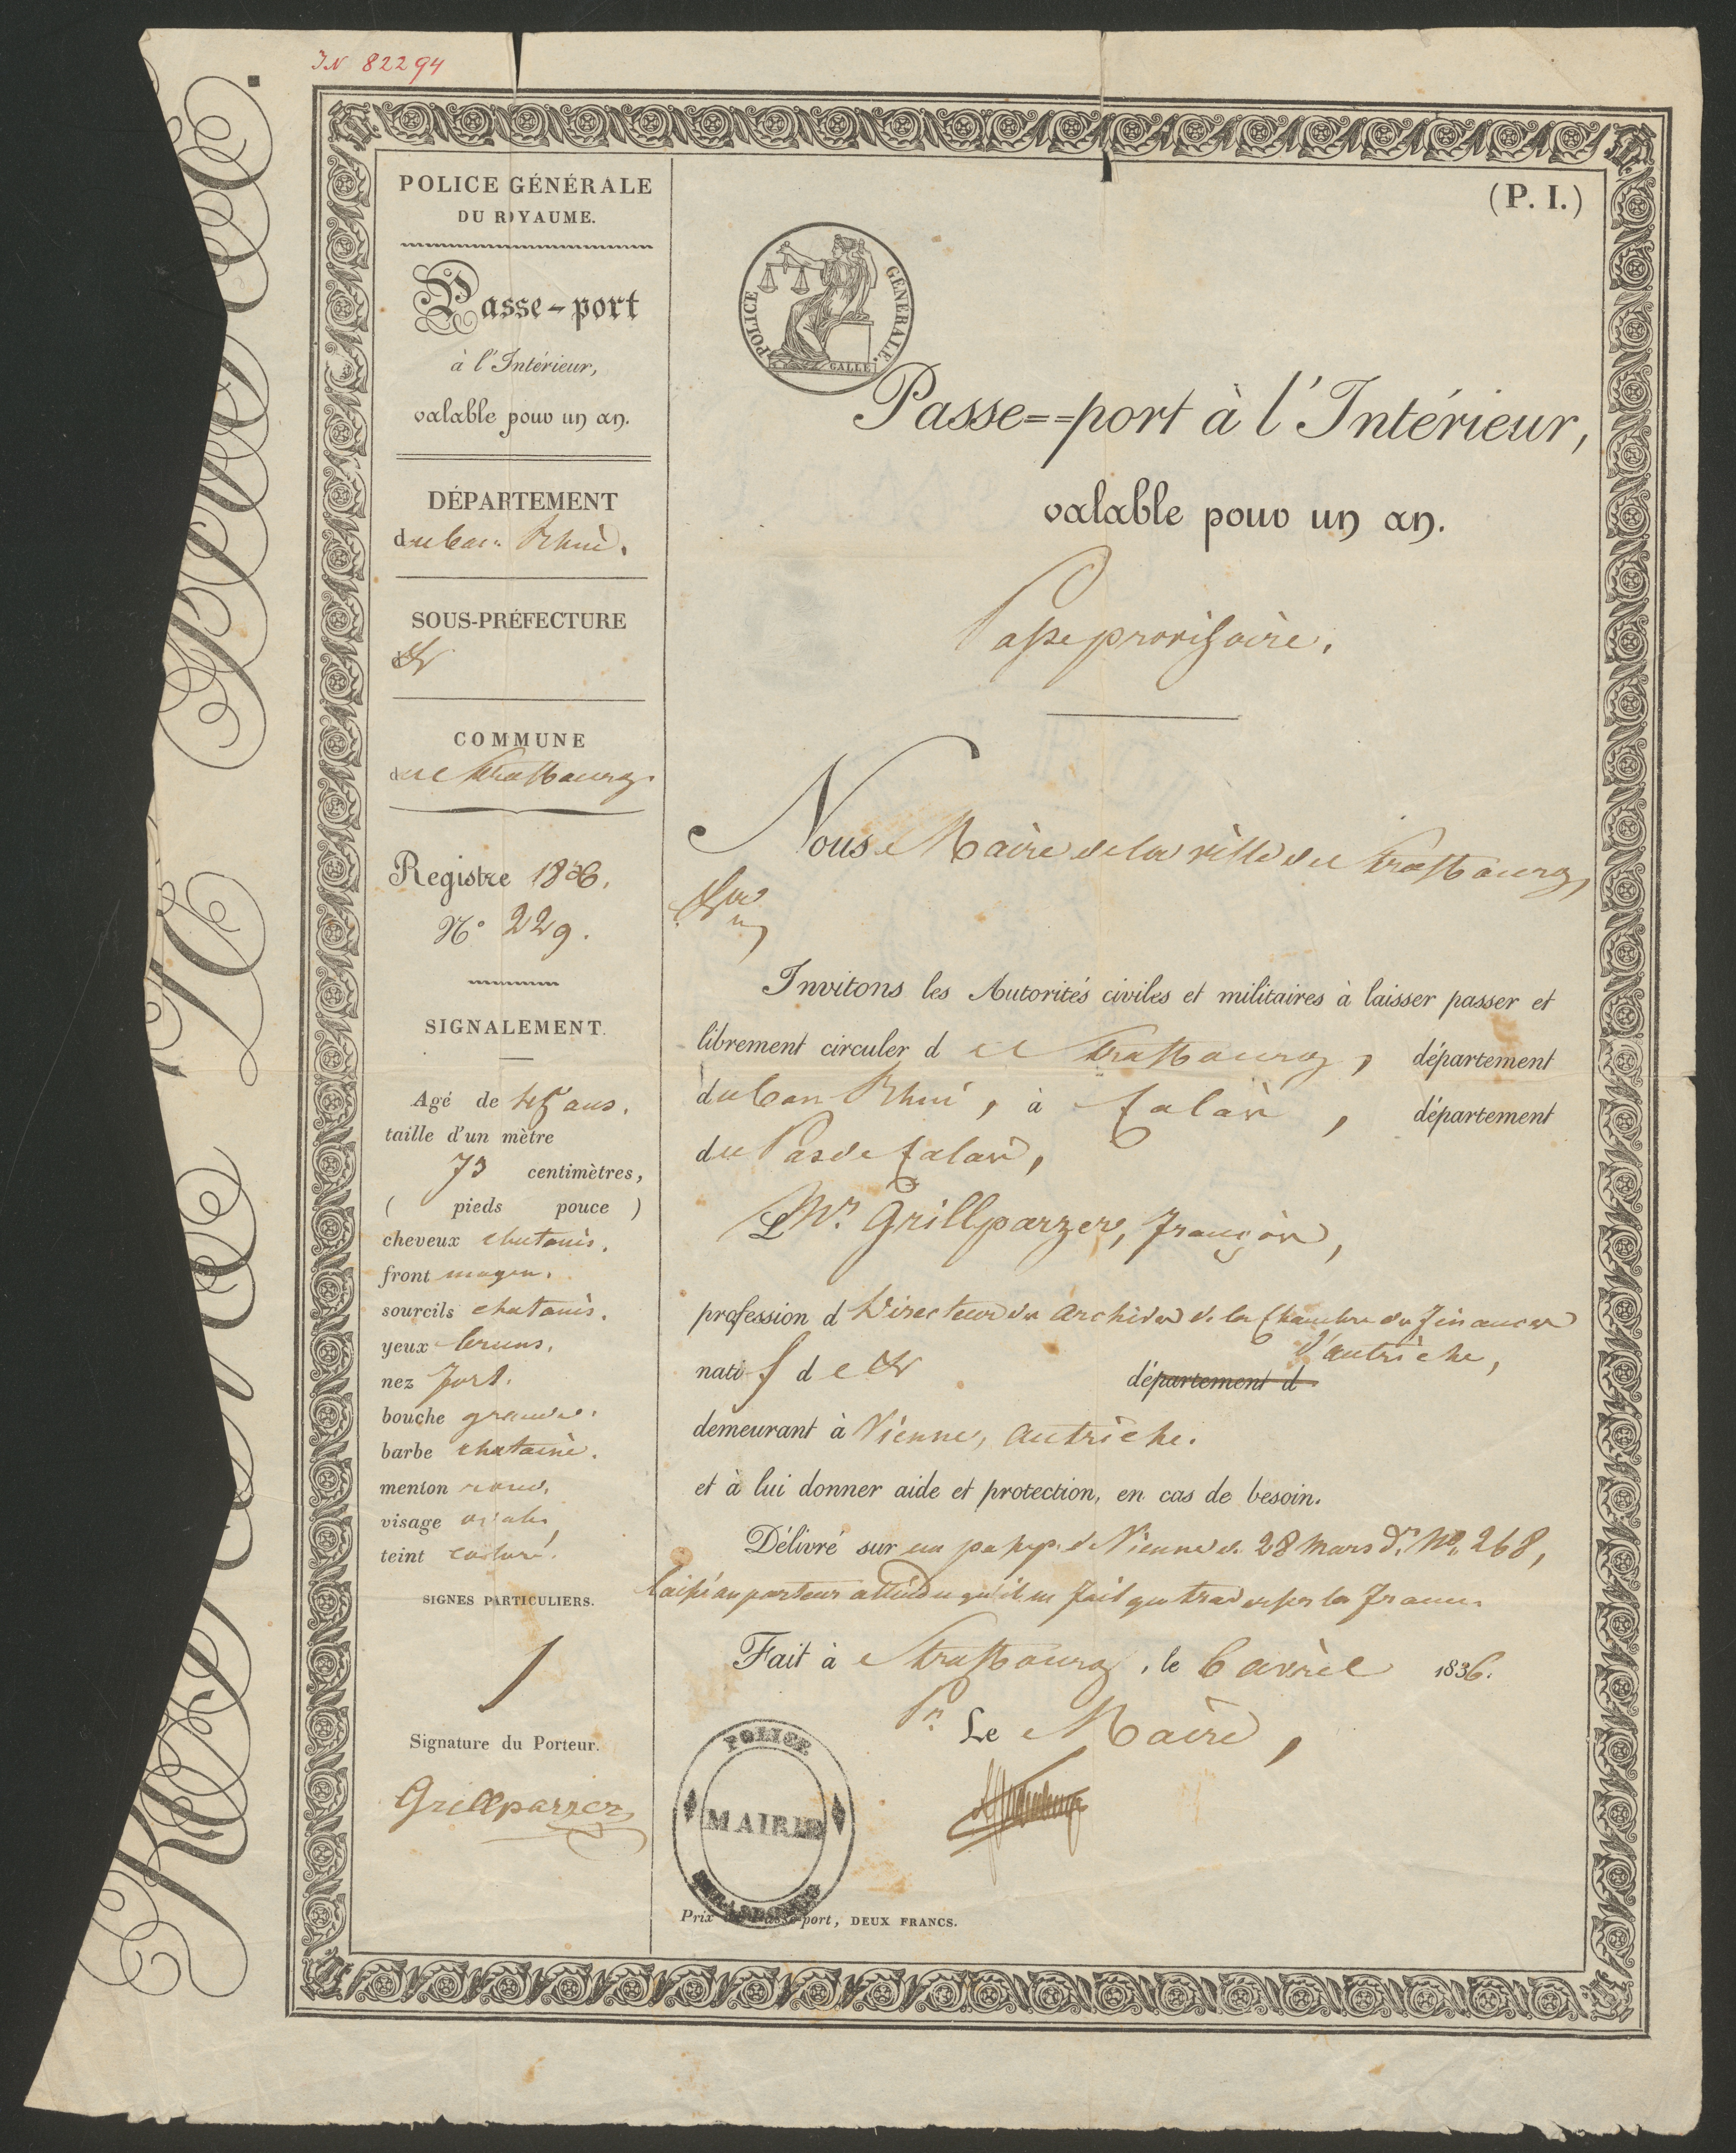 IN 82294
POLICE GÉNÉRALE
DU ROYAUME.
Passe-port
à l'Intérieur,
valable pour un an.
DÉPARTEMENT
du bas Rhin.
SOUS-PRÉFECTURE
COMMUNE
de Strasbourg.
Registre 1836.
N.° 229.
SIGNALEMENT.
Agé de 45 ans.
taille d'un mètre
73 centimètres,
( pieds pouce )
cheveux chatains.
front moyen.
sourcils chatains.
yeux bruns.
nez fort.
bouche grande.
barbe chataine.
menton rond.
visage ovale,
teint coloré.
SIGNES PARTICULIERS.
/
Signature du Porteur.
Grillparzer
(P. I.)
POLICE GÉNÉRALE.
GALLE
Passe==port à l'Intérieur,
valable pour un an.
Passe provisoire.
Nous Maire de la ville de Strasbourg,
Invitons les Autorités civiles et militaires à laisser passer et
librement circuler de Strasbourg, département
du bas Rhin, à Calais, département
du Pas de Calais,
Mr. Grillparzer, François,
profession d Directeur des archives de la Chambre des finances
d'autriche,
natif de département d
demeurant à Vienne, autriche.
et à lui donner aide et protection, en cas de besoin.
Délivré sur un passep. de Vienne du 28 mars dr. No. 268,
laissé au porteur attendu qu'il ne fait que traverser la france.
Fait à Strasbourg, le 6 avril 1836.
Pr. Le Maire,
POLICE
MAIRIE
STRASBOURG
Prix du Passe-port, DEUX FRANCS.